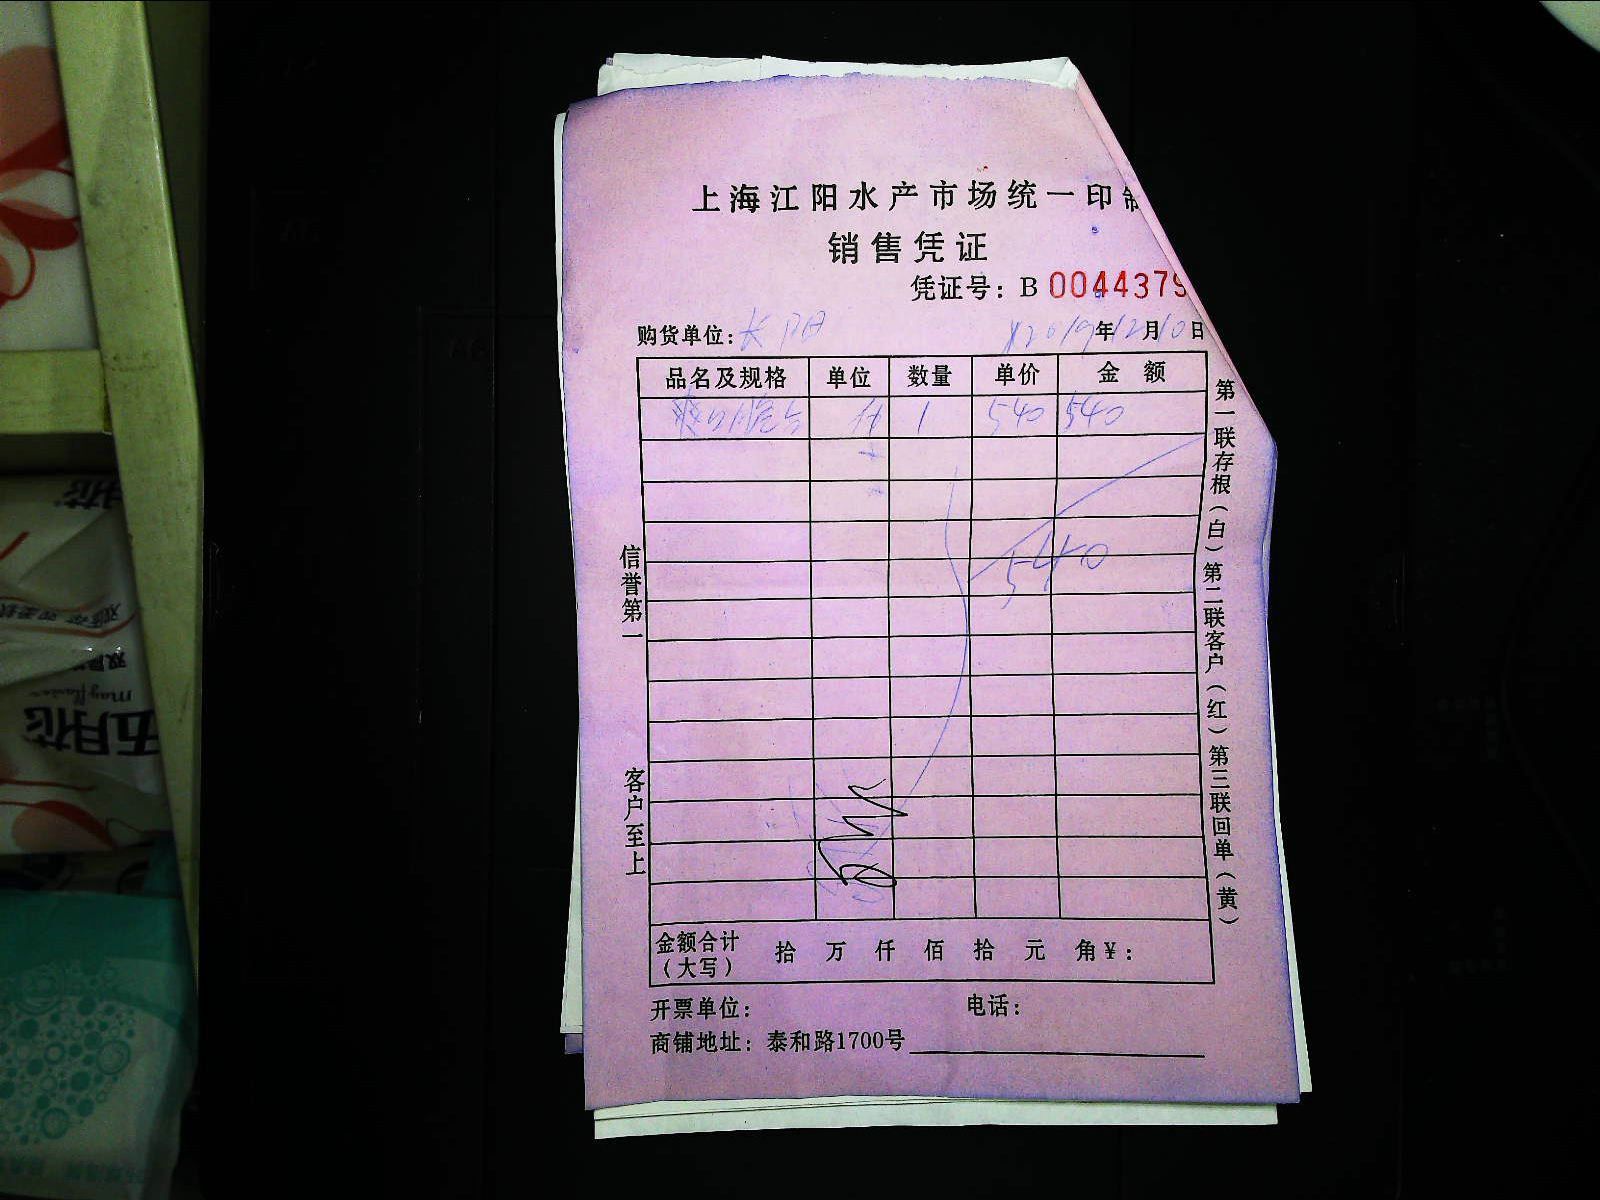 上海江阳水产市场统一印制
销售凭证
凭证号：B 0044379
购货单位：长阳 2019年12月10日
品名及规格 单位 数量 单价 金额
件 1 540 540
540
信誉第一
客户至上
第一联存根（白）第二联客户（红）第三联回单（黄）
金额合计（大写） 拾 万 仟 佰 拾 元 角 ¥：
开票单位： 电话：
商铺地址：泰和路1700号
五月花
mayflower